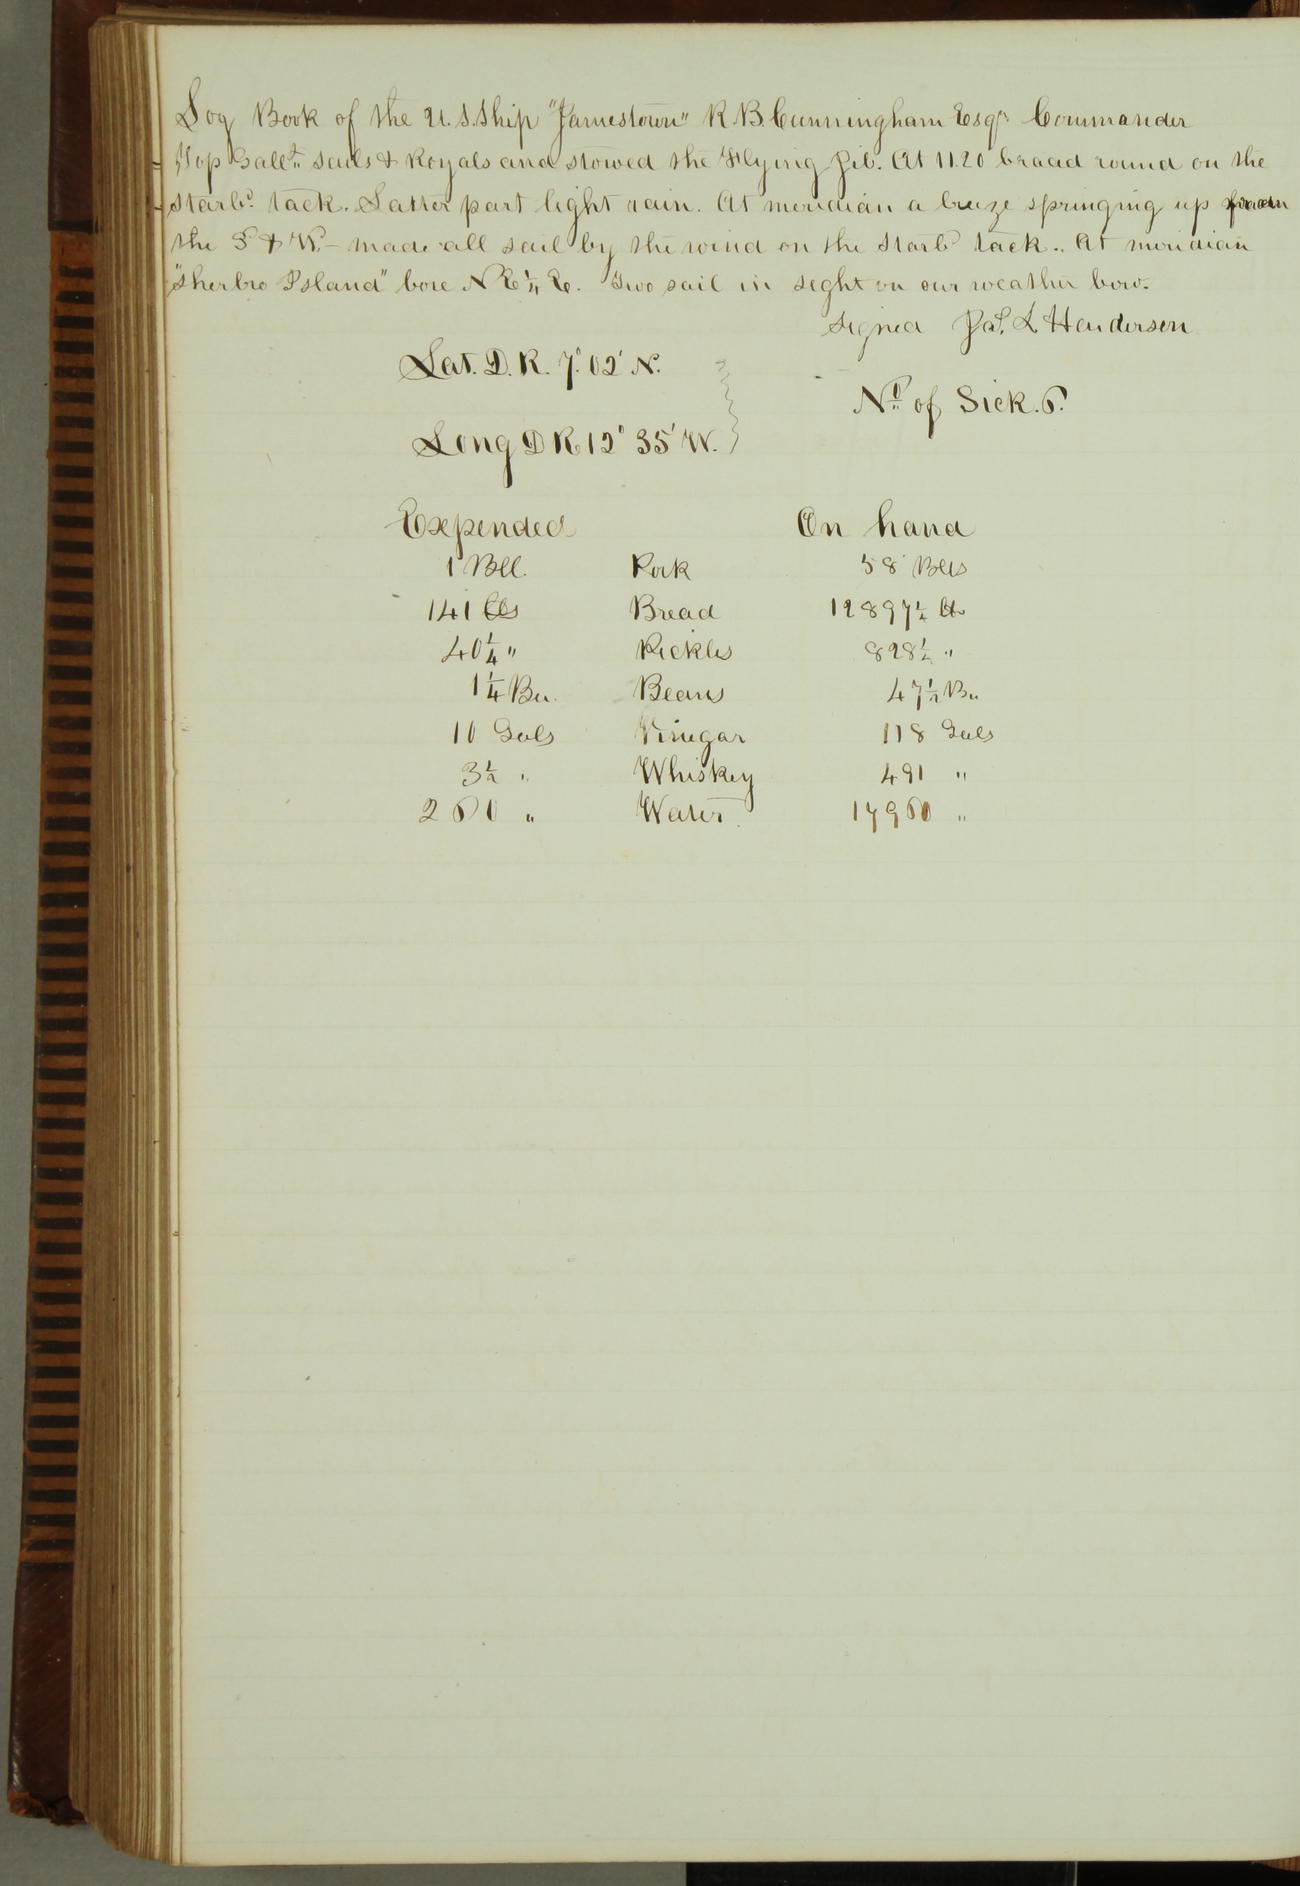 Log Book of the U.S. Ship "Jamestown" R.B. Cunningham Esqr. Commander
Top Gallt. sails & Royals and stowed the Flying Jib. At 11.20 braced round on the
starbd. tack. Latter part light rain. At meridian a breeze springing up from
the S & W. – made all sail by the wind on the starbd tack. At meridian
"Sherbro Island" bore N E ¼ E. Two sail in sight on our weather bow.
signed Jas. L Henderson
Lat. D. R. 7° 02' N.
No. of Sick. 6.
Long D R 12° 35' W.
Expended On hand
1 Bll. Pork 58 Blls
141 lbs Bread 12897¼ lbs
40¼ " Pickles 828½ "
1¼ Bu. Beans 47½ Bu.
10 Gals Vinegar 118 Gals
3½ " Whiskey 491 "
260 " Water 17960 "